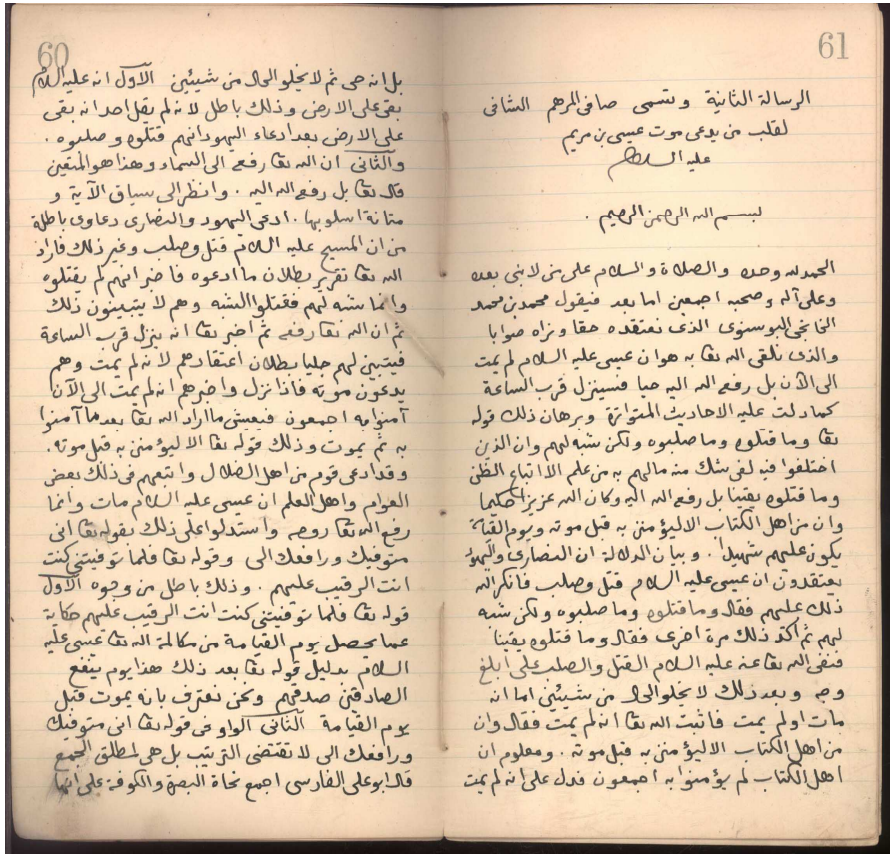 61
الرسالة الثانية وتسمى صافى المرهم الشافى
لقلب من يدعى موت عيسى بن مريم
عليه السلام
بسم الله الرحمن الرحيم .
الحمد لله وحده والصلاة والسلام على من لا نبى بعده
وعلى آله وصحبه اجمعين اما بعد فيقول محمد بن محمد
الخانجى البوسنوى الذى نعتقده حقا ونراه صوابا
والذى نلقى الله تعا به هو ان عيسى عليه السلام لم يمت
الى الآن بل رفعه الله اليه حيا فسينزل قرب الساعة
كما دلت عليه الاحاديث المتواترة وبرهان ذلك قوله
تعا وما قتلوه وما صلبوه ولكن شبه لهم وان الذين
اختلفوا فيه لفى شك منه مالهم به من علم الا اتباع الظن
وما قتلوه يقينا بل رفعه الله اليه وكان الله عزيزا حكيما
وان من اهل الكتاب الا ليؤمنن به قبل موته ويوم القيامة
يكون عليهم شهيدا . وبيان الدلالة ان النصارى واليهود
يعتقدون ان عيسى عليه السلام قتل وصلب فانكر الله
ذلك عليهم فقال وما قتلوه وما صلبوه ولكن شبه
لهم ثم اكد ذلك مرة اخرى فقال وما قتلوه يقينا
فنفى الله تعا عنه عليه السلام القتل والصلب على ابلغ
وجه وبعد ذلك لا يخلو الحال من شيئين اما انه
مات او لم يمت فاثبت الله تعا انه لم يمت فقال وان
من اهل الكتاب الا ليؤمنن به قبل موته . ومعلوم ان
اهل الكتاب لم يؤمنوا به اجمعون فدل على انه لم يمت
60
بل انه حى ثم لا يخلو الحال من شيئين الاول انه عليه السلام
بقى على الارض وذلك باطل لانه لم يقل احد انه بقى
على الارض بعد ادعاء اليهود انهم قتلوه وصلبوه .
والثانى ان الله تعا رفعه الى السماء وهذا هو المتعين
قال تعا بل رفعه الله اليه . وانظر الى سياق الآية و
متانة اسلوبها . ادعى اليهود والنصارى دعاوى باطلة
من ان المسيح عليه السلام قتل وصلب وغير ذلك فاراد
الله تعا تقرير بطلان ما ادعوه فاخبر انهم لم يقتلوه
وانما شبه لهم فقتلوا الشبه وهم لا يتبينون ذلك
ثم ان الله تعا رفعه ثم اخبر تعا انه ينزل قرب الساعة
فيتبين لهم جليا بطلان اعتقادهم لانه لم يمت وهم
يدعون موته فاذا نزل واخبرهم انه لم يمت الى الآن
آمنوا به اجمعون فيعيش ما اراد الله تعا بعد ما آمنوا
به ثم يموت وذلك قوله تعا الا ليؤمنن به قبل موته .
وقد ادعى قوم من اهل الضلال واتبعهم فى ذلك بعض
العوام واهل العلم ان عيسى عليه السلام مات وانما
رفع الله تعا روحه واستدلوا على ذلك بقوله تعا انى
متوفيك ورافعك الى وقوله تعا فلما توفيتنى كنت
انت الرقيب عليهم . وذلك باطل من وجوه الاول
قوله تعا فلما توفيتنى كنت انت الرقيب عليهم حكاية
عما يحصل يوم القيامة من مكالمة الله تعا عيسى عليه
السلام بدليل قوله تعا بعد ذلك هذا يوم ينفع
الصادقين صدقهم ونحن نعترف بانه يموت قبل
يوم القيامة الثانى الواو فى قوله تعا انى متوفيك
ورافعك الى لا تقتضى الترتيب بل هى لمطلق الجمع
قال ابو على الفارسى اجمع نحاة البصرة والكوفة على انها